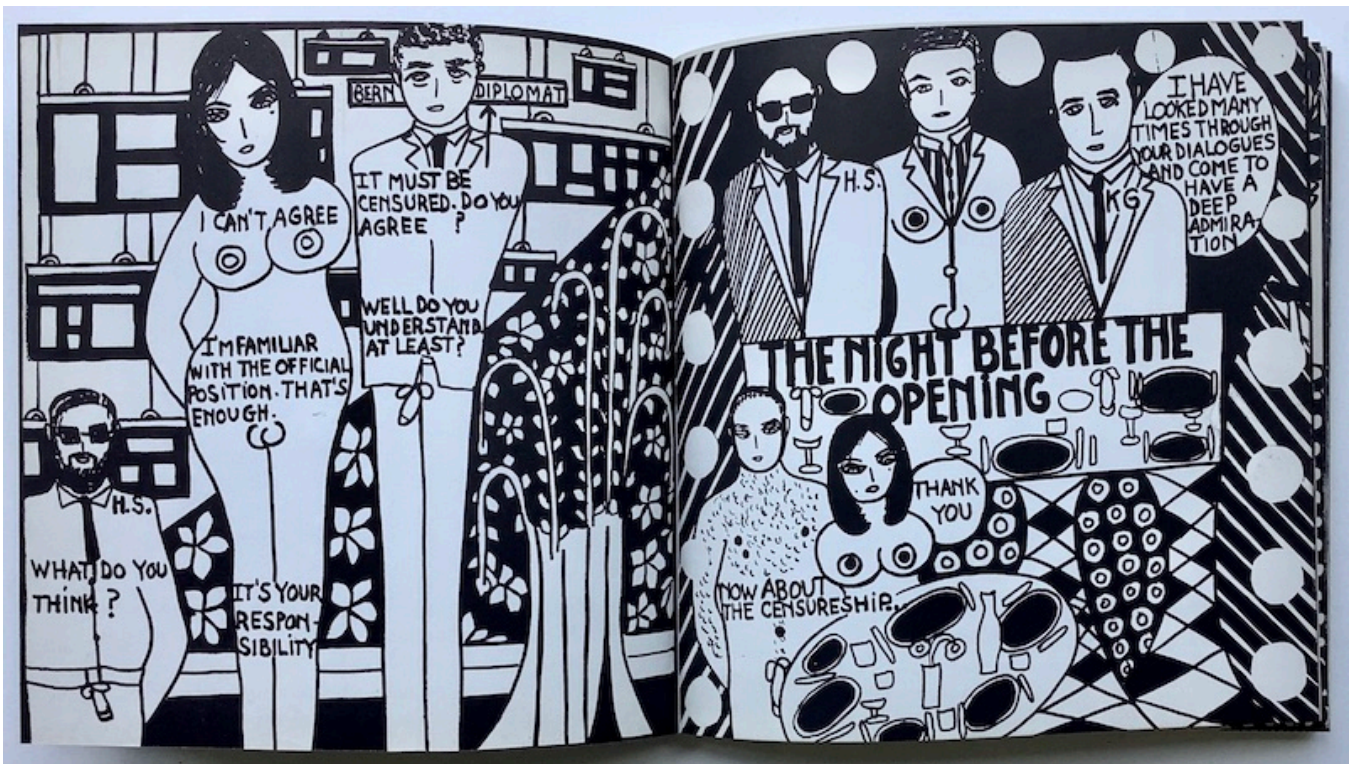 BERN DIPLOMAT
I CAN'T AGREE
IT MUST BE
CENSURED. DO YOU
AGREE ?
WELL DO YOU
UNDERSTAND
AT LEAST?
I'M FAMILIAR
WITH THE OFFICIAL
POSITION. THAT'S
ENOUGH.
H.S.
WHAT DO YOU
THINK ?
IT'S YOUR
RESPON-
SIBILITY
H.S.
KG
I HAVE
LOOKED MANY
TIMES THROUGH
YOUR DIALOGUES
AND COME TO
HAVE A
DEEP
ADMIRA-
TION
THE NIGHT BEFORE THE
OPENING
THANK
YOU
NOW ABOUT
THE CENSURESHIP.